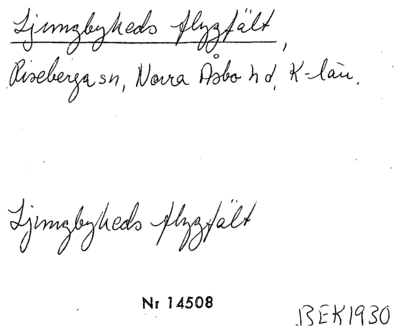 Ljungbyheds flygfält,
Riseberga sn, Norra Åsbo hd, K-län.
Ljungbyheds flygfält
Nr 14508
BEK1930